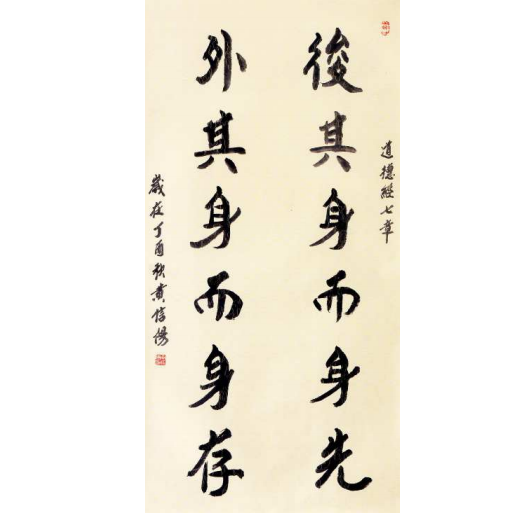 道德經七章
後其身而身先
外其身而身存
歲在丁酉秋黄信陽